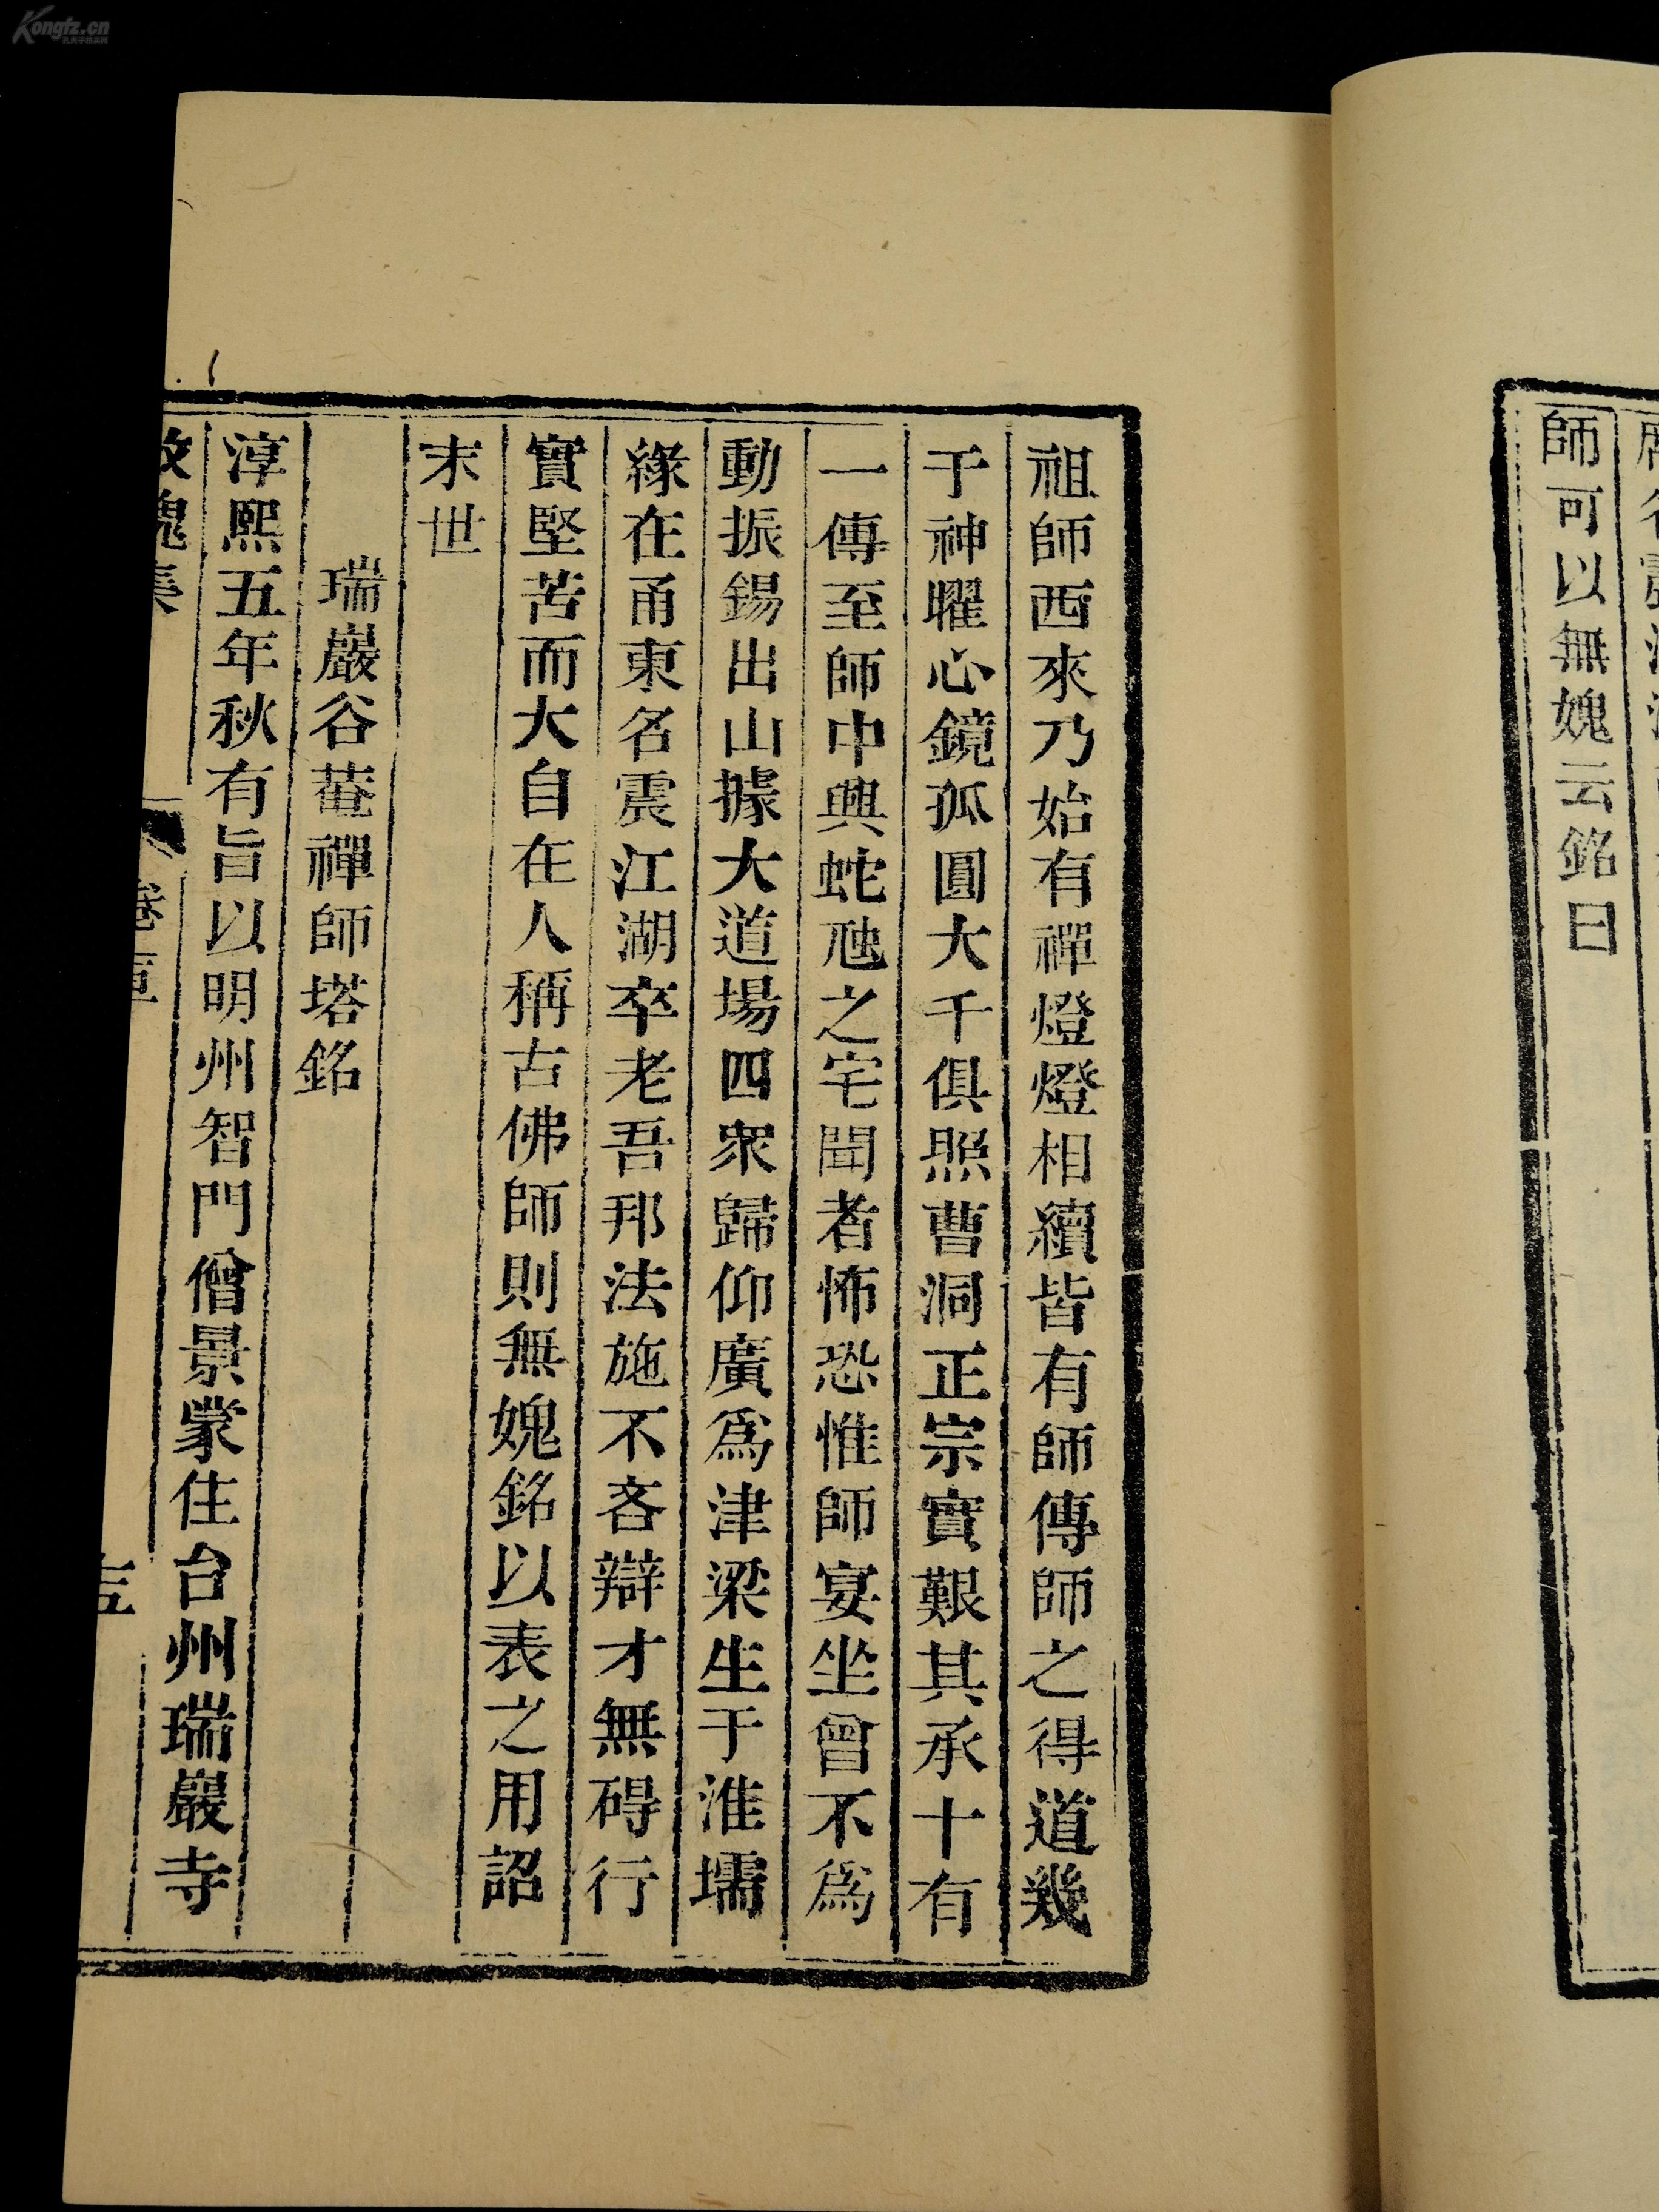 師可以無媿云銘曰
祖師西來乃始有禪燈燈相續皆有師傳師之得道幾
于神曜心鏡孤圓大千俱照曹洞正宗實艱其承十有
一傳至師中興蛇虺之宅聞者怖恐惟師宴坐曾不為
動振錫出山據大道場四眾歸仰廣為津梁生于淮壖
緣在甬東名震江湖卒老吾邦法施不吝辯才無碍行
實堅苦而大自在人稱古佛師則無媿銘以表之用詔
末世
瑞巖谷菴禪師塔銘
淳熙五年秋有旨以明州智門僧景蒙住台州瑞巖寺
攻媿集
Kongfz.cn